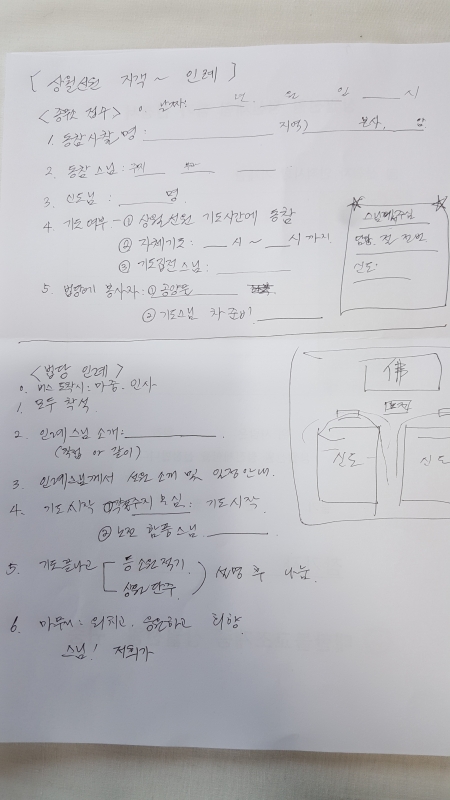 [ 상월선원 지객 ~ 인례 ]
<종무소 접수> 0. 날짜: ____년. ____월 ____일 ____시
1. 동참사찰명: ________ 지역) ____본사, ____암
2. 동참 스님:
3. 신도님 : ____명
4. 기도여부 - ① 상월선원 기도시간에 동참
② 자체기도: ____시 ~ ____시 까지
③ 기도집전스님: ________
5. 법당에 봉사자: ① 공양물 ________
② 기도스님 차 준비? ________
신도:
<법당 인례>
0. 버스 도착시: 마중. 인사
1. 모두 착석
2. 인례스님 소개: ________
(직접 or 같이)
3. 인례스님께서 선원 소개 및 일정안내.
4. 기도시작 ① 모심: 기도시작
② 노전 합풍스님 ________
5. 기도끝나고 [ 등 소원적기
상월단주 ) 설명 후 나눔.
6. 마무리: 외치고. 응원하고 회향
스님! 저희가
佛
신도
신도